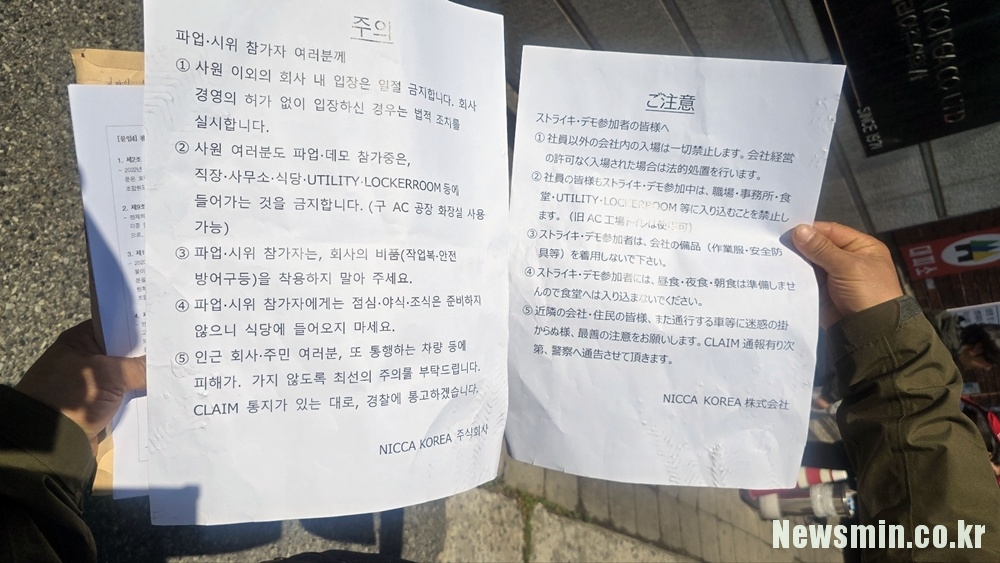 주의
파업·시위 참가자 여러분께
① 사원 이외의 회사 내 입장은 일절 금지합니다. 회사
경영의 허가 없이 입장하신 경우는 법적 조치를
실시합니다.
② 사원 여러분도 파업·데모 참가중은,
직장·사무소·식당·UTILITY·LOCKERROOM등에
들어가는 것을 금지합니다. (구 AC 공장 화장실 사용
가능)
③ 파업·시위 참가자는, 회사의 비품(작업복·안전
방어구등)을 착용하지 말아 주세요.
④ 파업·시위 참가자에게는 점심·야식·조식은 준비하지
않으니 식당에 들어오지 마세요.
⑤ 인근 회사·주민 여러분, 또 통행하는 차량 등에
피해가. 가지 않도록 최선의 주의를 부탁드립니다.
CLAIM 통지가 있는 대로, 경찰에 통고하겠습니다.
NICCA KOREA 주식회사
ご注意
ストライキ・デモ参加者の皆様へ
① 社員以外の会社内の入場は一切禁止します。会社経営
の許可なく入場された場合は法的処置を行います。
② 社員の皆様もストライキ・デモ参加中は、職場・事務所・食
堂・UTILITY・LOCKERROOM 等に入り込むことを禁止し
ます。（旧 AC 工場トイレは使用可）
③ ストライキ・デモ参加者は、会社の備品（作業服・安全防
具等）を着用しないで下さい。
④ ストライキ・デモ参加者には、昼食・夜食・朝食は準備しませ
んので食堂へは入り込まないでください。
⑤ 近隣の会社・住民の皆様、また通行する車等に迷惑の掛
からぬ様、最善の注意をお願いします。CLAIM 通報有り次
第、警察へ通告させて頂きます。
NICCA KOREA 株式会社
1. 제2조
2. 제9조
3. 제1
CO LTD
SINCE 1971
대피소
Newsmin.co.kr